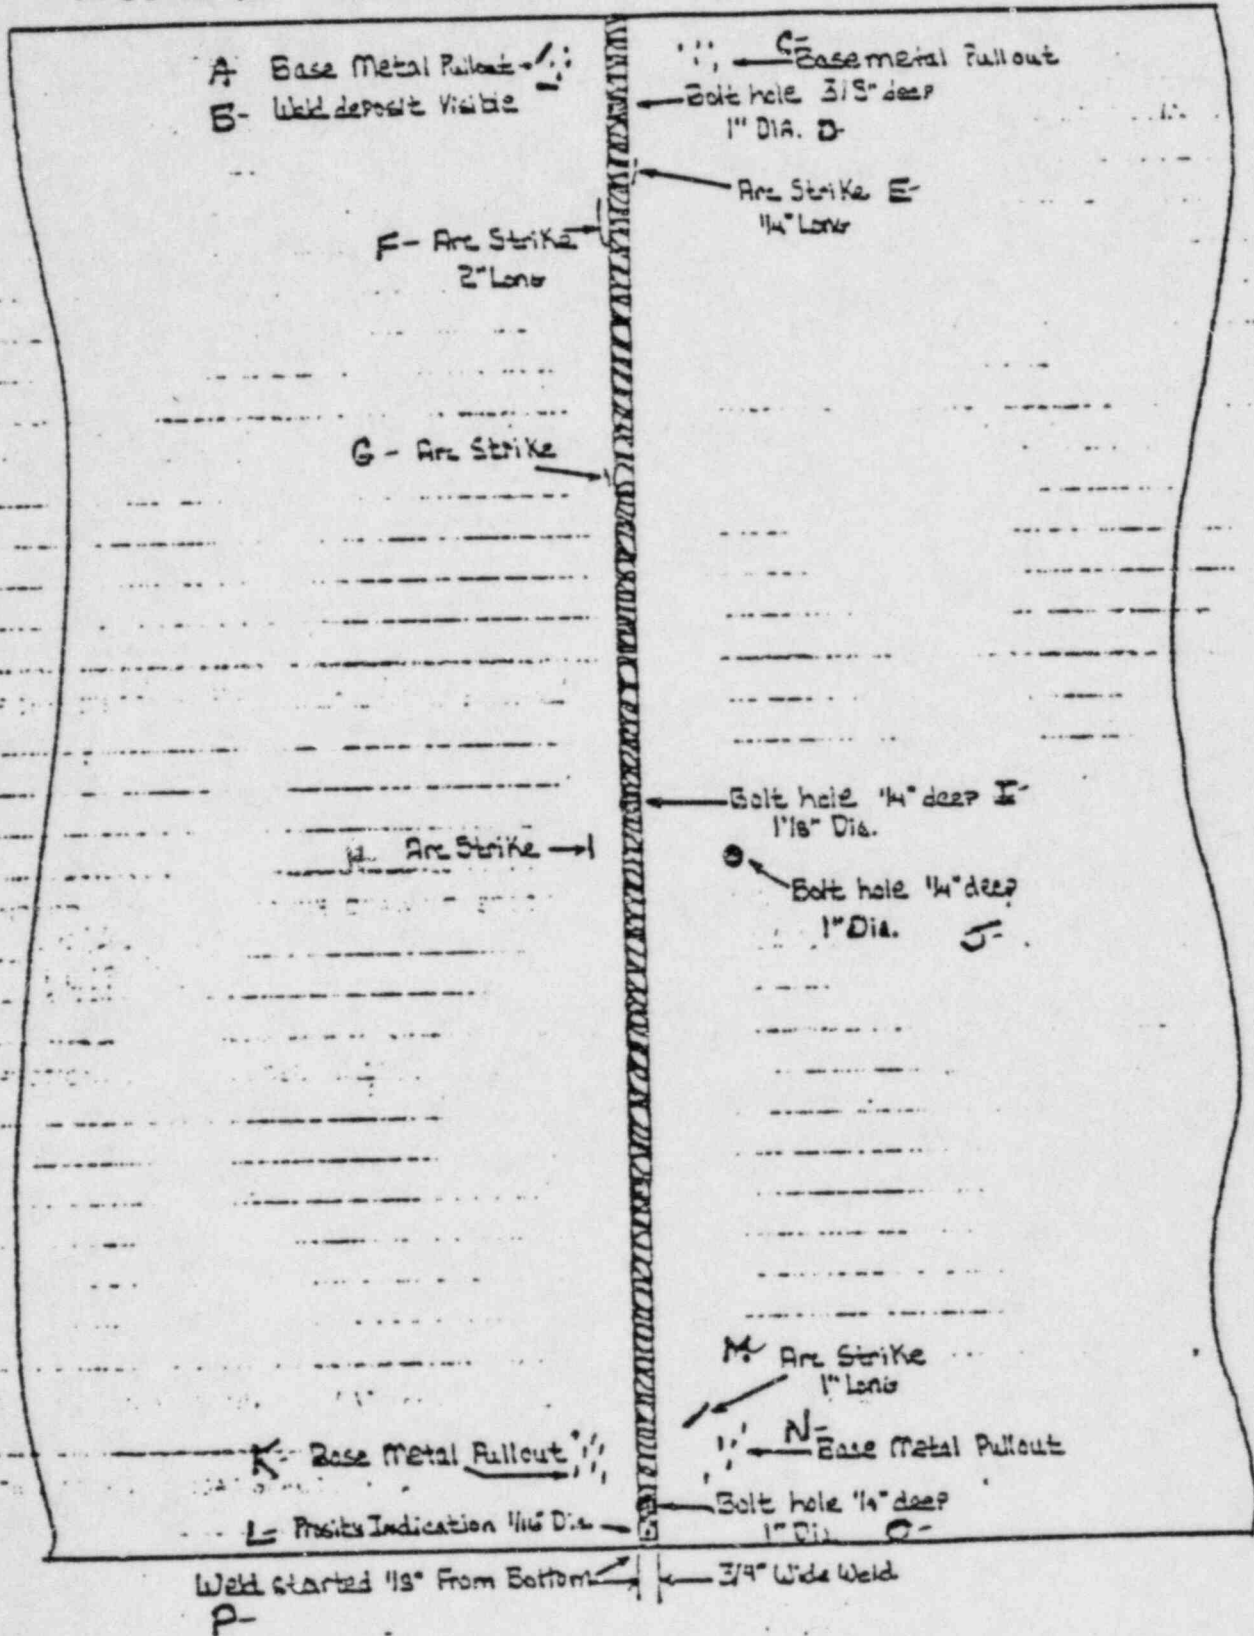 A Base Metal Pullout
B- Weld deposit Visible
C-
Base metal Pullout
Bolt hole 3/8" deep
1" DIA. D-
Arc Strike E-
1/4" Long
F- Arc Strike
2" Long
G - Arc Strike
Bolt hole 1/4" deep I-
1 1/8" Dia.
H. Arc Strike
Bolt hole 1/4" deep
1" Dia. J-
M. Arc Strike
1" Long
K- Base Metal Pullout
N-
Base Metal Pullout
Bolt hole 1/4" deep
1" Dia. O-
L- Prosity Indication 1/16" Dia.
Weld started 1/8" From Bottom
3/4" Wide Weld
P-